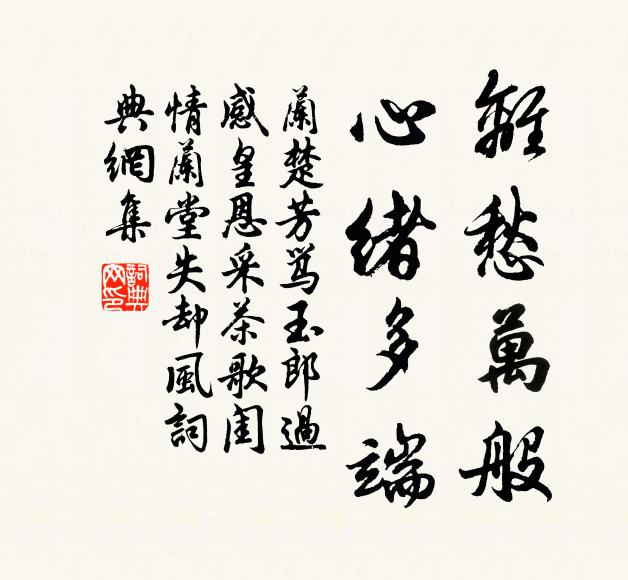 離愁萬般
心緒多端
蘭楚芳罵玉郎過
感皇恩采茶歌闺
情蘭堂失却風詞
典網集
詞典网印